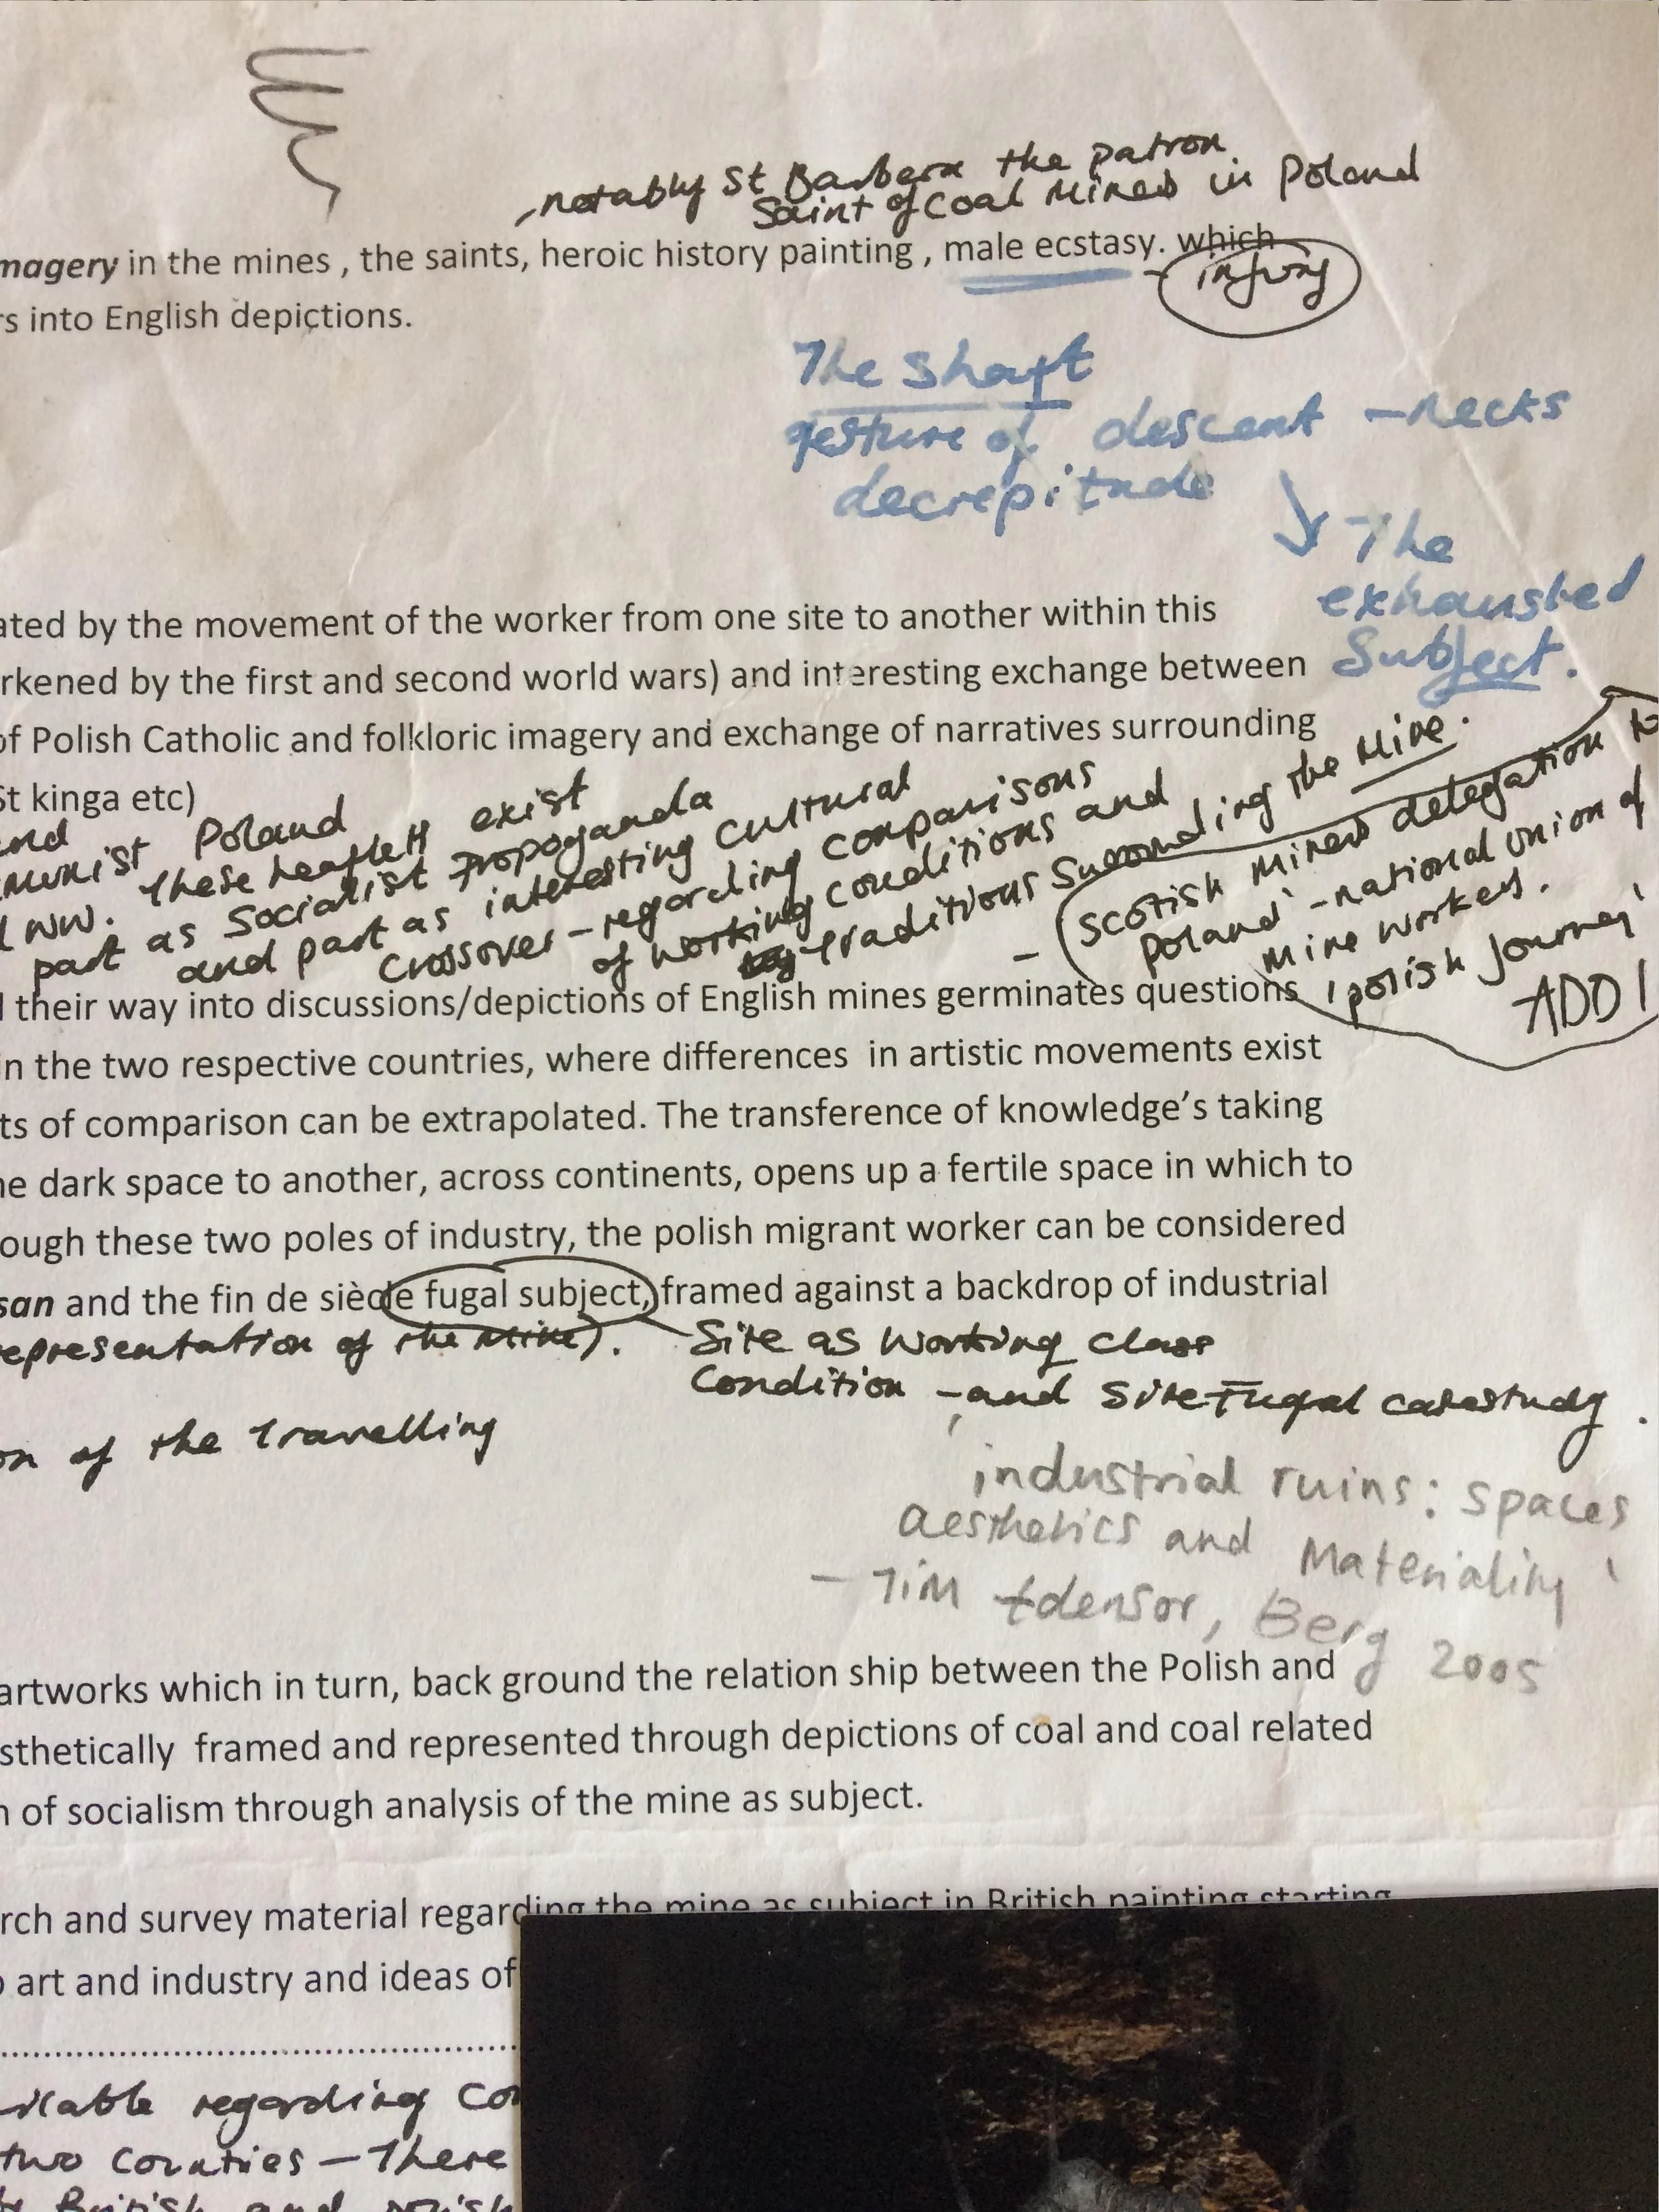 , notably St Barbera the patron
Saint of coal Miners in Poland
magery in the mines , the saints, heroic history painting , male ecstasy. which
- injury
rs into English depictions.
The shaft
gesture of descent - necks
decrepitude
The
exhausted
Subject.
ated by the movement of the worker from one site to another within this
rkened by the first and second world wars) and interesting exchange between
of Polish Catholic and folkloric imagery and exchange of narratives surrounding
St kinga etc)
and
munist Poland
WW. These leaflett exist
part as Socialist Propoganda
and part as interesting cultural
crossover - regarding comparisons
of working conditions and
traditions surrounding the Mine.
- (Scotish miners delegation to
Poland' - national union of
mine workers.
'polish journey'
ADD!
their way into discussions/depictions of English mines germinates questions
in the two respective countries, where differences in artistic movements exist
ts of comparison can be extrapolated. The transference of knowledge's taking
ne dark space to another, across continents, opens up a fertile space in which to
ough these two poles of industry, the polish migrant worker can be considered
san and the fin de siècle fugal subject, framed against a backdrop of industrial
representation of the Mine). Site as Working Class
Condition - and Site Fugal casestudy.
on of the Travelling
industrial ruins: spaces
aesthetics and Materiality'
- Tim Edensor, Berg 2005
artworks which in turn, back ground the relation ship between the Polish and
sthetically framed and represented through depictions of coal and coal related
n of socialism through analysis of the mine as subject.
rch and survey material regarding the mine as subject in British painting starting
o art and industry and ideas of
........................................
ilable regarding Co
two Counties - There
British and polish